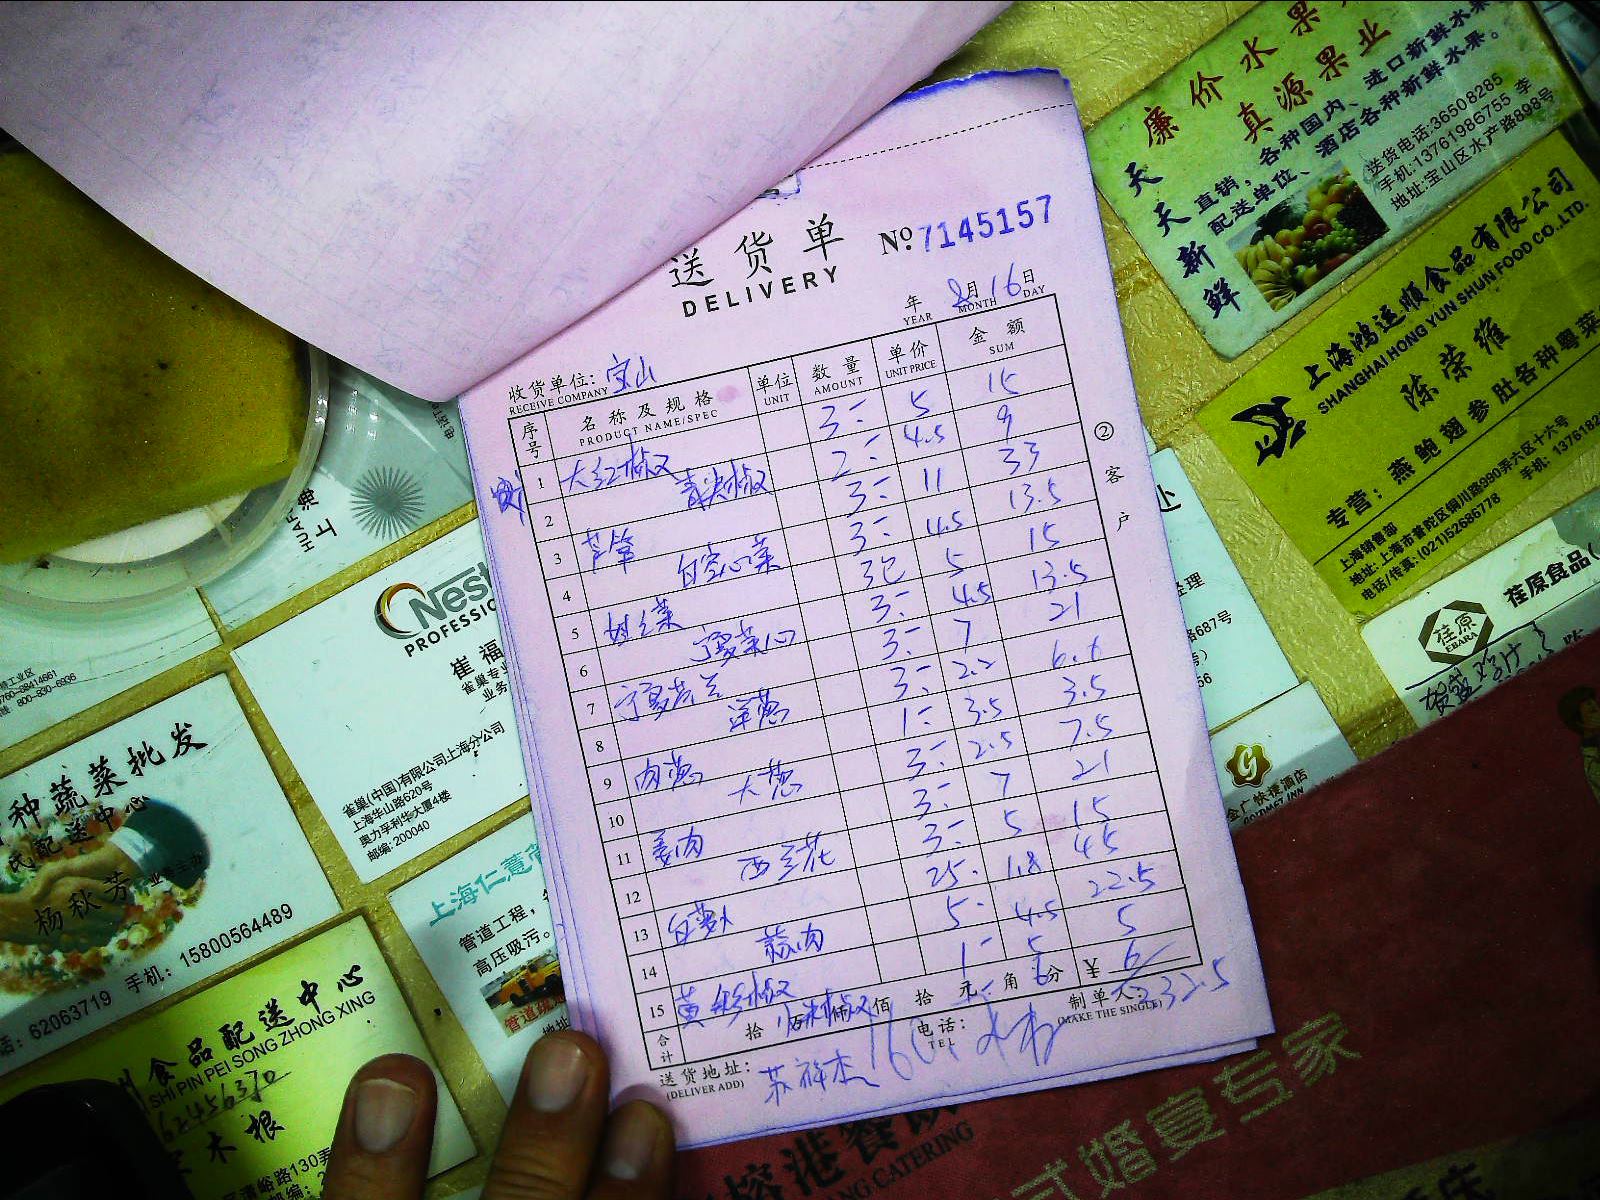 送货单
DELIVERY
№ 7145157
年 8月 16日
YEAR MONTH DAY
收货单位: 宝山
RECEIVE COMPANY
序号 名称及规格 单位 数量 单价 金额
PRODUCT NAME/SPEC UNIT AMOUNT UNIT PRICE SUM
1 大红椒 3 5 15
青尖椒 2 4.5 9
2
3 芦笋 3 11 33
4 白空心菜 3 4.5 13.5
5 3包 5 15
6 宁夏菜心 3 4.5 13.5
7 宁夏芥兰 3 7 21
8 洋葱 3 2.2 6.6
9 肉葱 1 3.5 3.5
10 大葱 3 2.5 7.5
11 姜肉 3 7 21
12 西兰花 3 5 15
13 白萝卜 25 1.8 45
14 蒜肉 5 4.5 22.5
15 黄彩椒 1 5 5
6 6
合计 拾 佰 拾 元 角 分 ¥ 232.5
送货地址:
(DELIVER ADD)
电话:
TEL
制单人:
(MAKE THE SINGLE)
② 客户
廉价水果
真源果业
天天新鲜
直销，各种国内、进口新鲜水果
配送单位、酒店各种新鲜水果。
送货电话:36508285
手机:13761986755 李
地址:宝山区水产路898号
上海鸿运顺食品有限公司
SHANGHAI HONG YUN SHUN FOOD CO.,LTD.
陈荣雍
专营：燕鲍翅参肚各种粤菜
上海销售部
地址：上海市普陀区铜川路990弄六区十六号
电话/传真:(021)52686778 手机：1376182
荏原
EBARA
荏原食品(
经理
路687号
金广快捷酒店
HUAF
上海
Nes
PROFESSIO
崔福
雀巢专业
业务
雀巢(中国)有限公司上海分公司
上海华山路620号
奥力孚利华大厦4楼
邮编: 200040
0760-88414661
800-830-6936
种蔬菜批发
民配送中心
杨秋芳
手机：15800564489
62063719
上海仁薏
管道工程，
高压吸污。
管道疏
地址
食品配送中心
SHI PIN PEI SONG ZHONG XING
62456370
木根
清峪路130弄
邮编:
港餐饮
CATERING
式婚宴专家